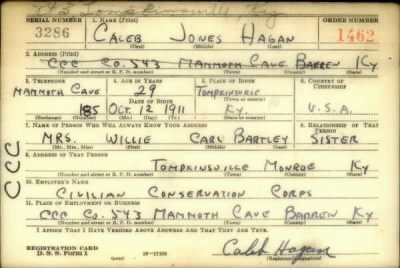 SERIAL NUMBER 1. NAME (Print) ORDER NUMBER
3286 CALEB JONES HAGAN 1462
(First) (Middle) (Last)
2. ADDRESS (Print)
CCC CO. 543 MAMMOTH CAVE BARREN KY
(Number and street or R. F. D. number) (Town) (County) (State)
3. TELEPHONE 4. AGE IN YEARS 5. PLACE OF BIRTH 6. COUNTRY OF CITIZENSHIP
MAMMOTH CAVE 29 TOMPKINSVILLE
DATE OF BIRTH (Town or county)
185 OCT. 12 1911 KY. U.S.A.
(Exchange) (Number) (Mo.) (Day) (Yr.) (State or country)
7. NAME OF PERSON WHO WILL ALWAYS KNOW YOUR ADDRESS 8. RELATIONSHIP OF THAT PERSON
MRS. WILLIE CARL BARTLEY SISTER
(Mr., Mrs., Miss) (First) (Middle) (Last)
9. ADDRESS OF THAT PERSON
TOMPKINSVILLE MONROE KY
(Number and street or R. F. D. number) (Town) (County) (State)
10. EMPLOYER'S NAME
CCC
CIVILIAN CONSERVATION CORPS
11. PLACE OF EMPLOYMENT OR BUSINESS
CCC CO. 543 MAMMOTH CAVE BARREN KY.
(Number and street or R. F. D. number) (Town) (County) (State)
I AFFIRM THAT I HAVE VERIFIED ABOVE ANSWERS AND THAT THEY ARE TRUE.
REGISTRATION CARD
D. S. S. Form 1 16—17105 Caleb Hagan
(Registrant's signature)